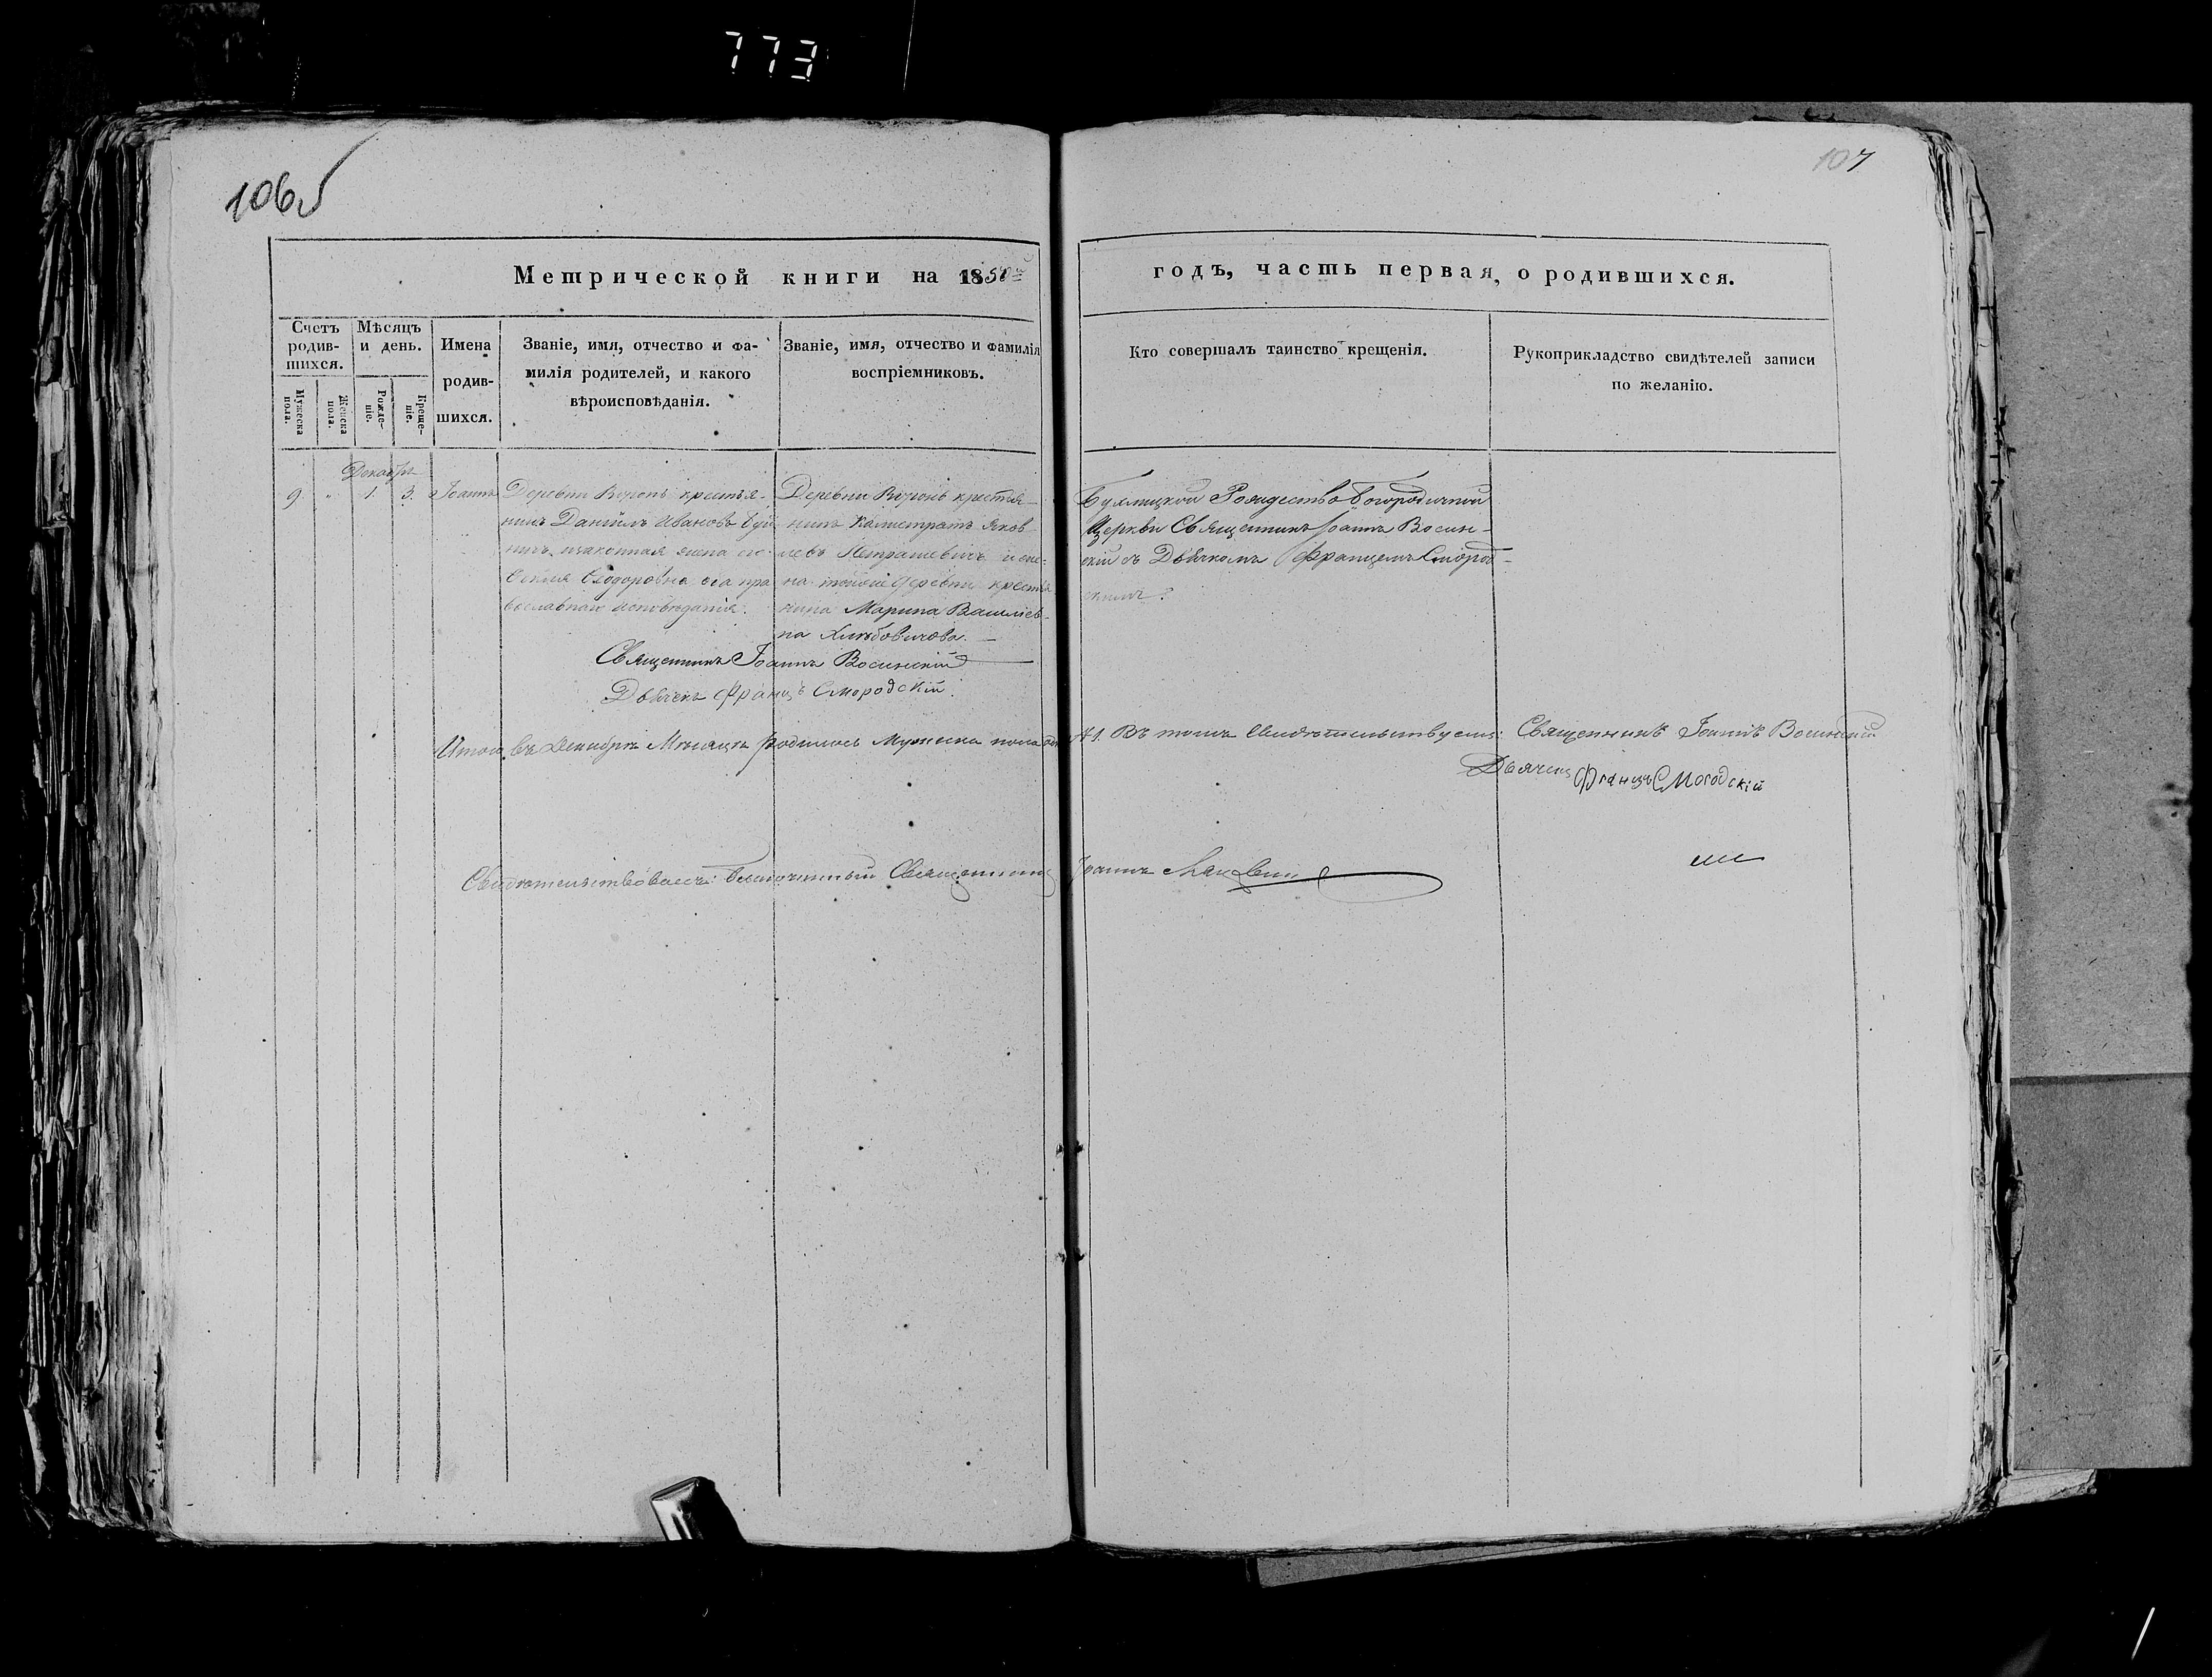 773
106б
107
Метрической книги на 1850й
годъ, часть первая, о родившихся.
Счетъ родив-шихся.
Мѣсяцъ и день.
Имена родив-шихся.
Званіе, имя, отчество и фа-
милія родителей, и какого
вѣроисповѣданія.
Званіе, имя, отчество и фамилія
воспріемниковъ.
Кто совершалъ таинство крещенія.
Рукоприкладство свидѣтелей записи
по желанію.
Мужеска пола.
Женска пола.
Рожде-ніе.
Креще-ніе.
Декабрь
9. " 1. 3. Іоаннъ
Деревни крестья-
нинъ Даніилъ Ивановъ
законная жена его
Ѳеодоровна оба пра
вославнаго исповѣданія.
Деревни крестья-
нинъ Калистратъ Яков-
левъ Петрашевичъ и
тойже деревни крестья
нина Марина Василіев-
на
Рождество Богородичной
Церкви Священникъ Іоаннъ Восин-
скій съ Дьячкомъ Францемъ Смород-
скимъ.
Священникъ Іоаннъ Восинскій
Дьячекъ Францъ Смородскій.
Итого въ Декабрѣ Мѣсяцѣ родилось Мужеска пола
1. Въ томъ Свидѣтельствуемъ: Священникъ Іоаннъ Восинскій
Дьячекъ Францъ Смородскій
Свидѣтельствовалъ: Благочинный Священникъ Іоаннъ